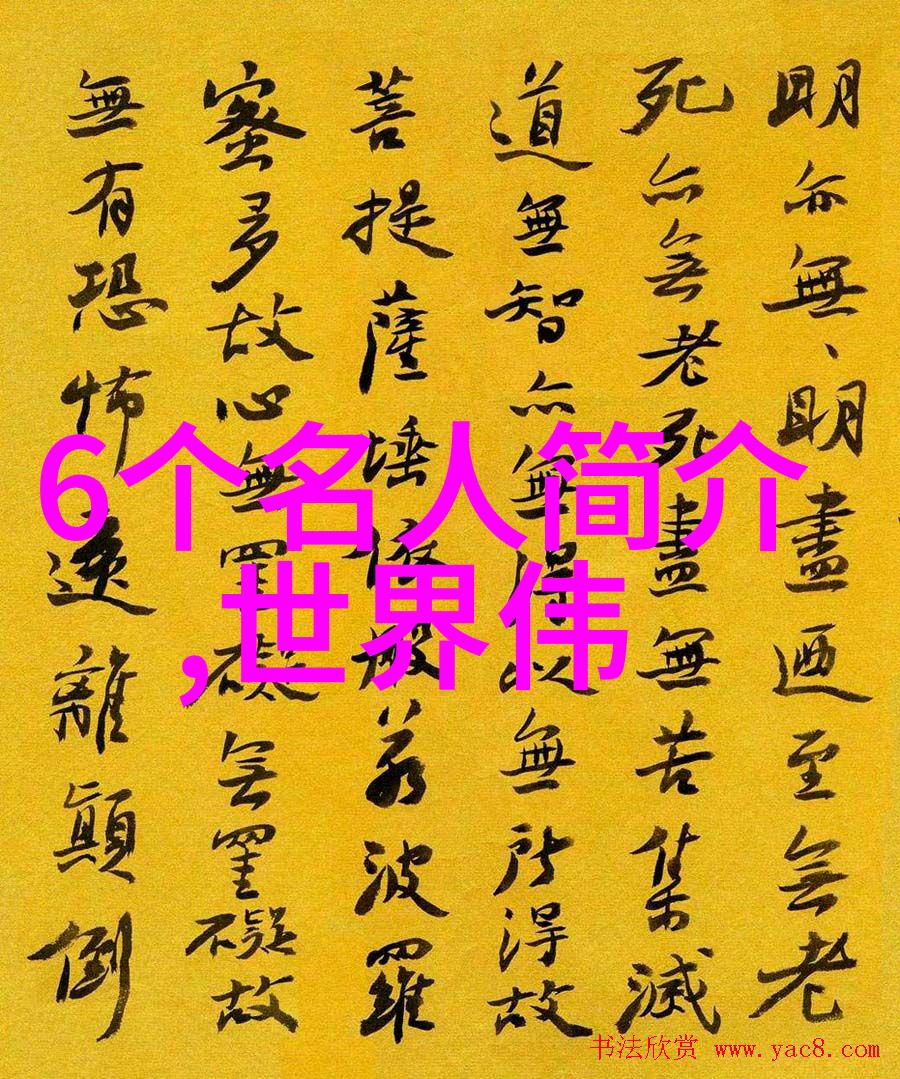 明亦無、明盡迺至無老
死亦無老死盡無苦集滅
道無智亦無得以無所得故
菩提薩埵依般若波羅
蜜多故心無罣礙無罣礙故
無有恐怖遠離顛倒
6个名人简介
,世界伟
书法欣赏 www.yac8.com